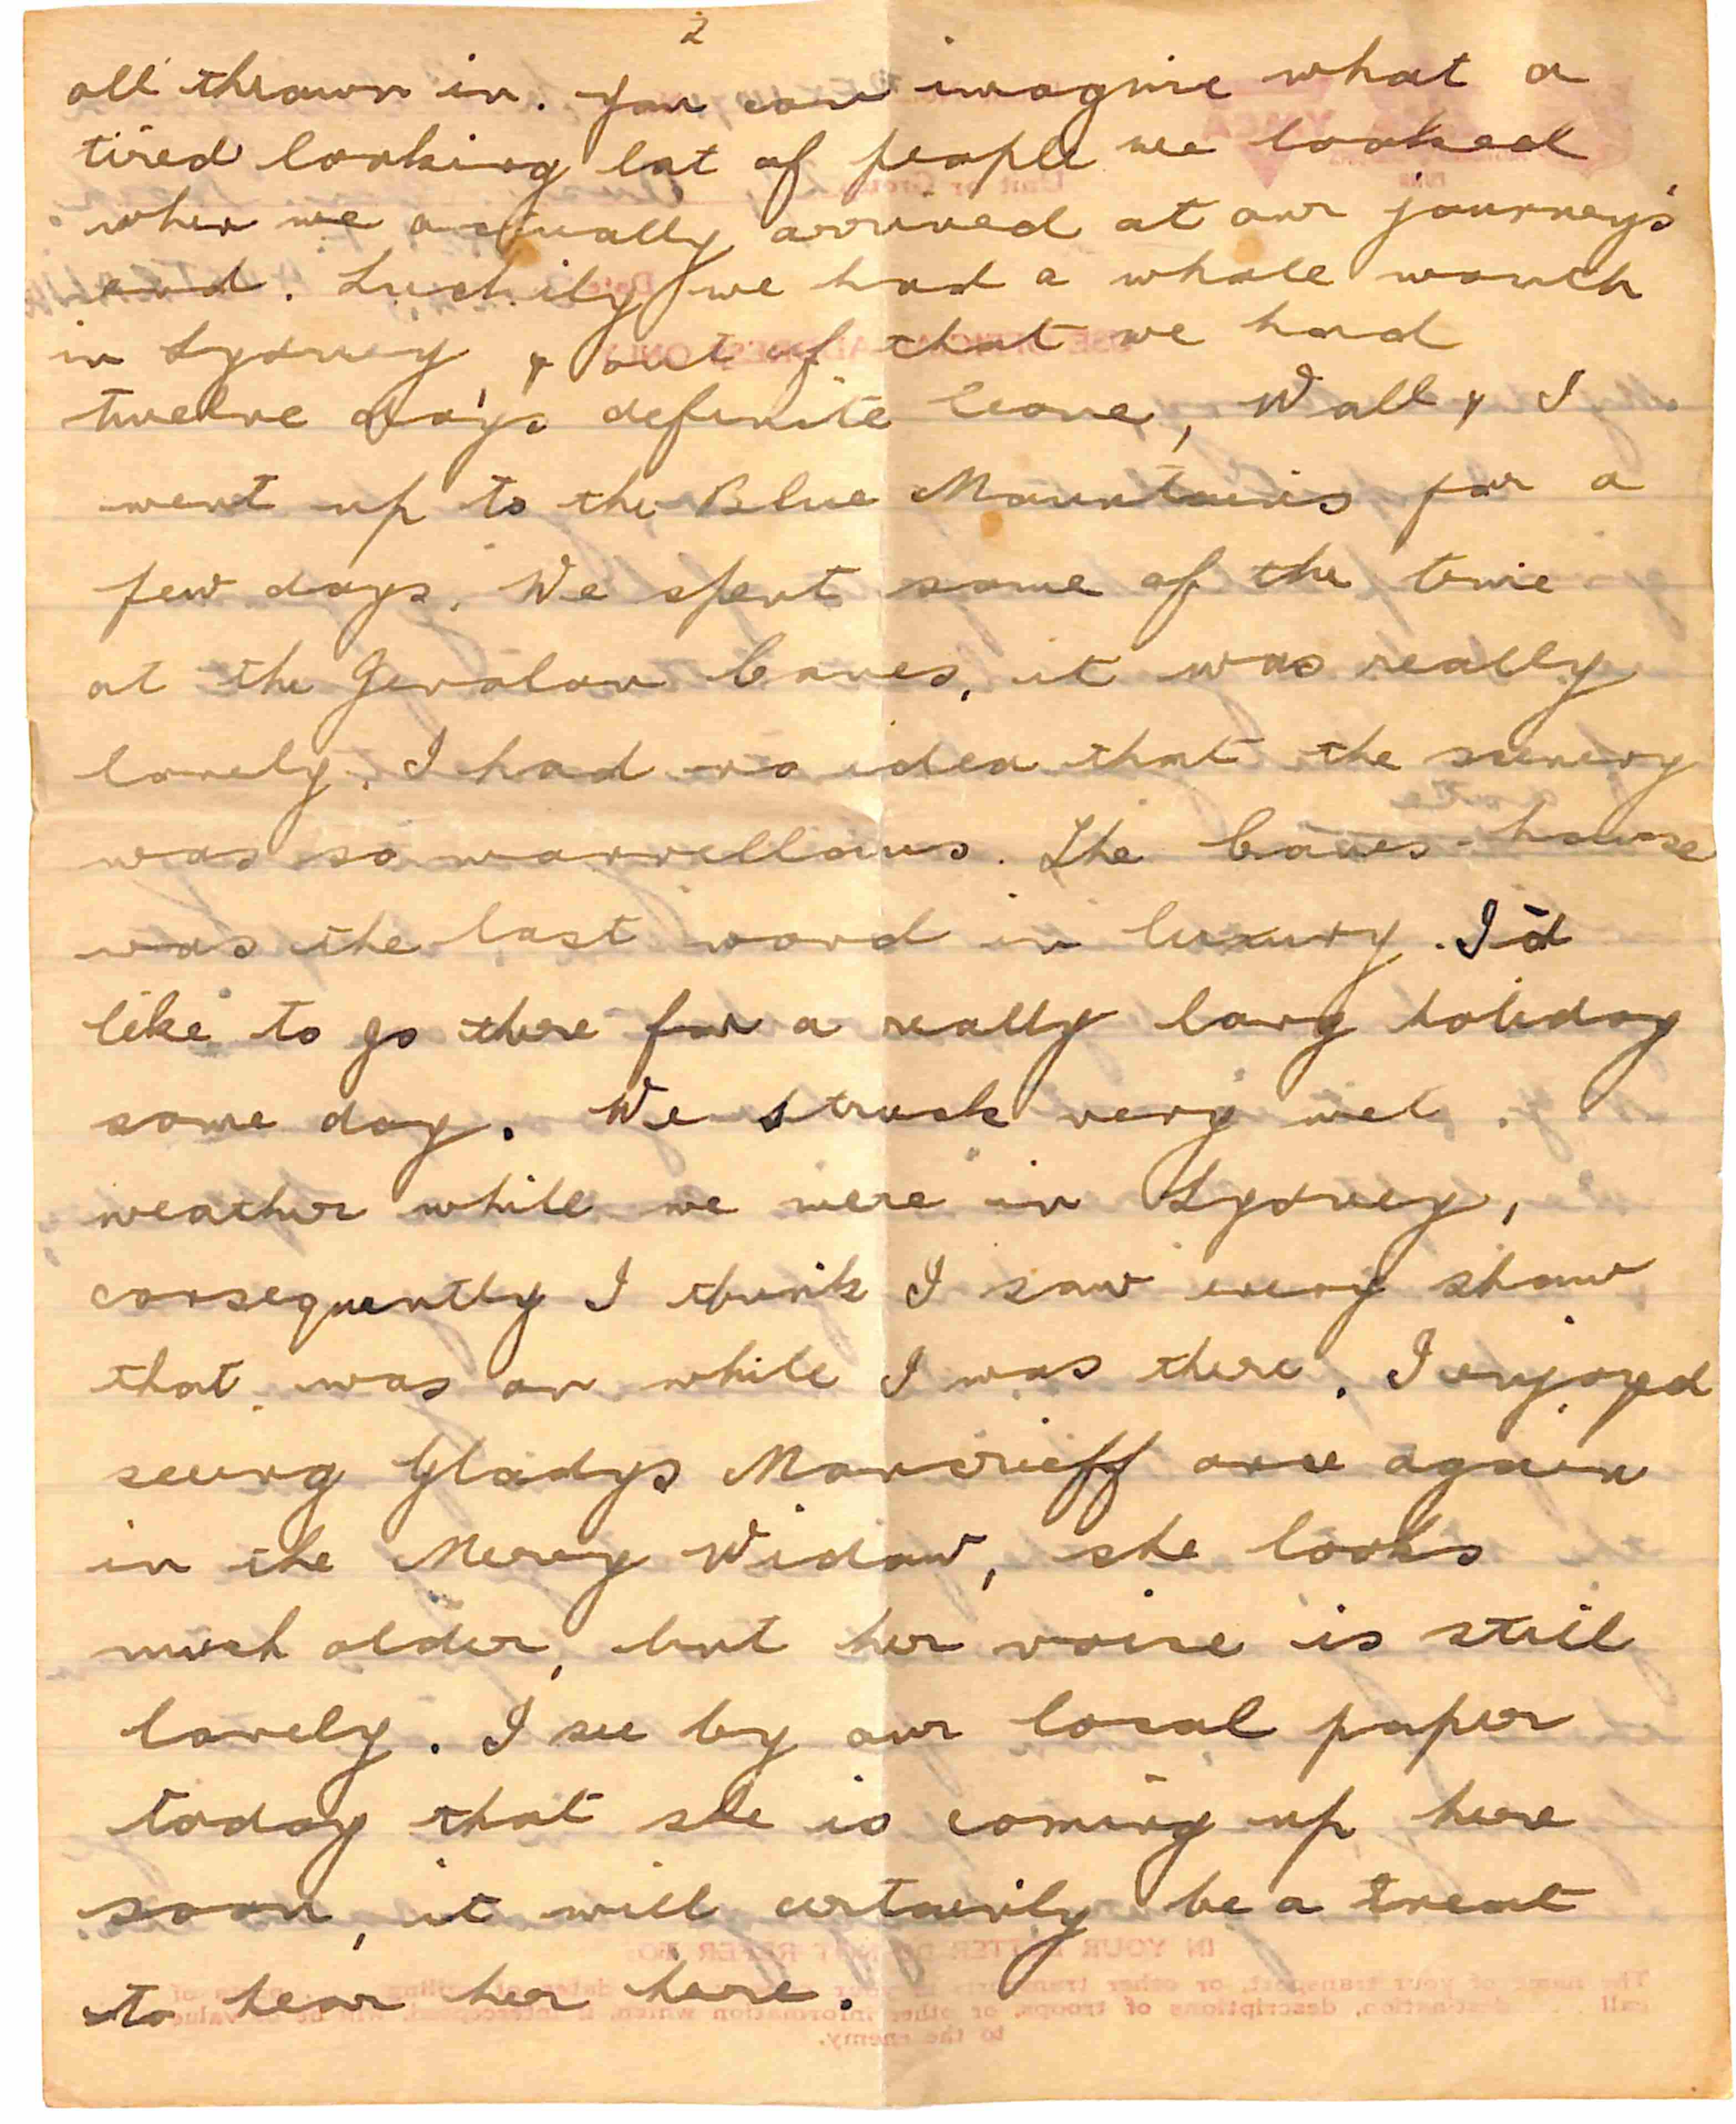 2
all thrown in. You can imagine what a
tired looking lot of people we looked
when we actually arrived at our journey's
end. Luckily we had a whole month
in Sydney, & out of that we had
twelve days definite leave, Wall & I
went up to the Blue Mountains for a
few days. We spent some of the time
at the Jenolan Caves, it was really
lovely. I had no idea that the scenery
was so marvellous. The Caves-house
was the last word in luxury. I'd
like to go there for a really long holiday
some day. We struck very wet
weather while we were in Sydney,
consequently I think I saw every show
that was on while I was there. I enjoyed
seeing Gladys Moncrieff once again
in the Merry Widow, she looks
much older, but her voice is still
lovely. I see by our local paper
today that she is coming up here
soon, it will certainly be a treat
to hear her here.
IN YOUR LETTER DO NOT REFER TO:
to the enemy.